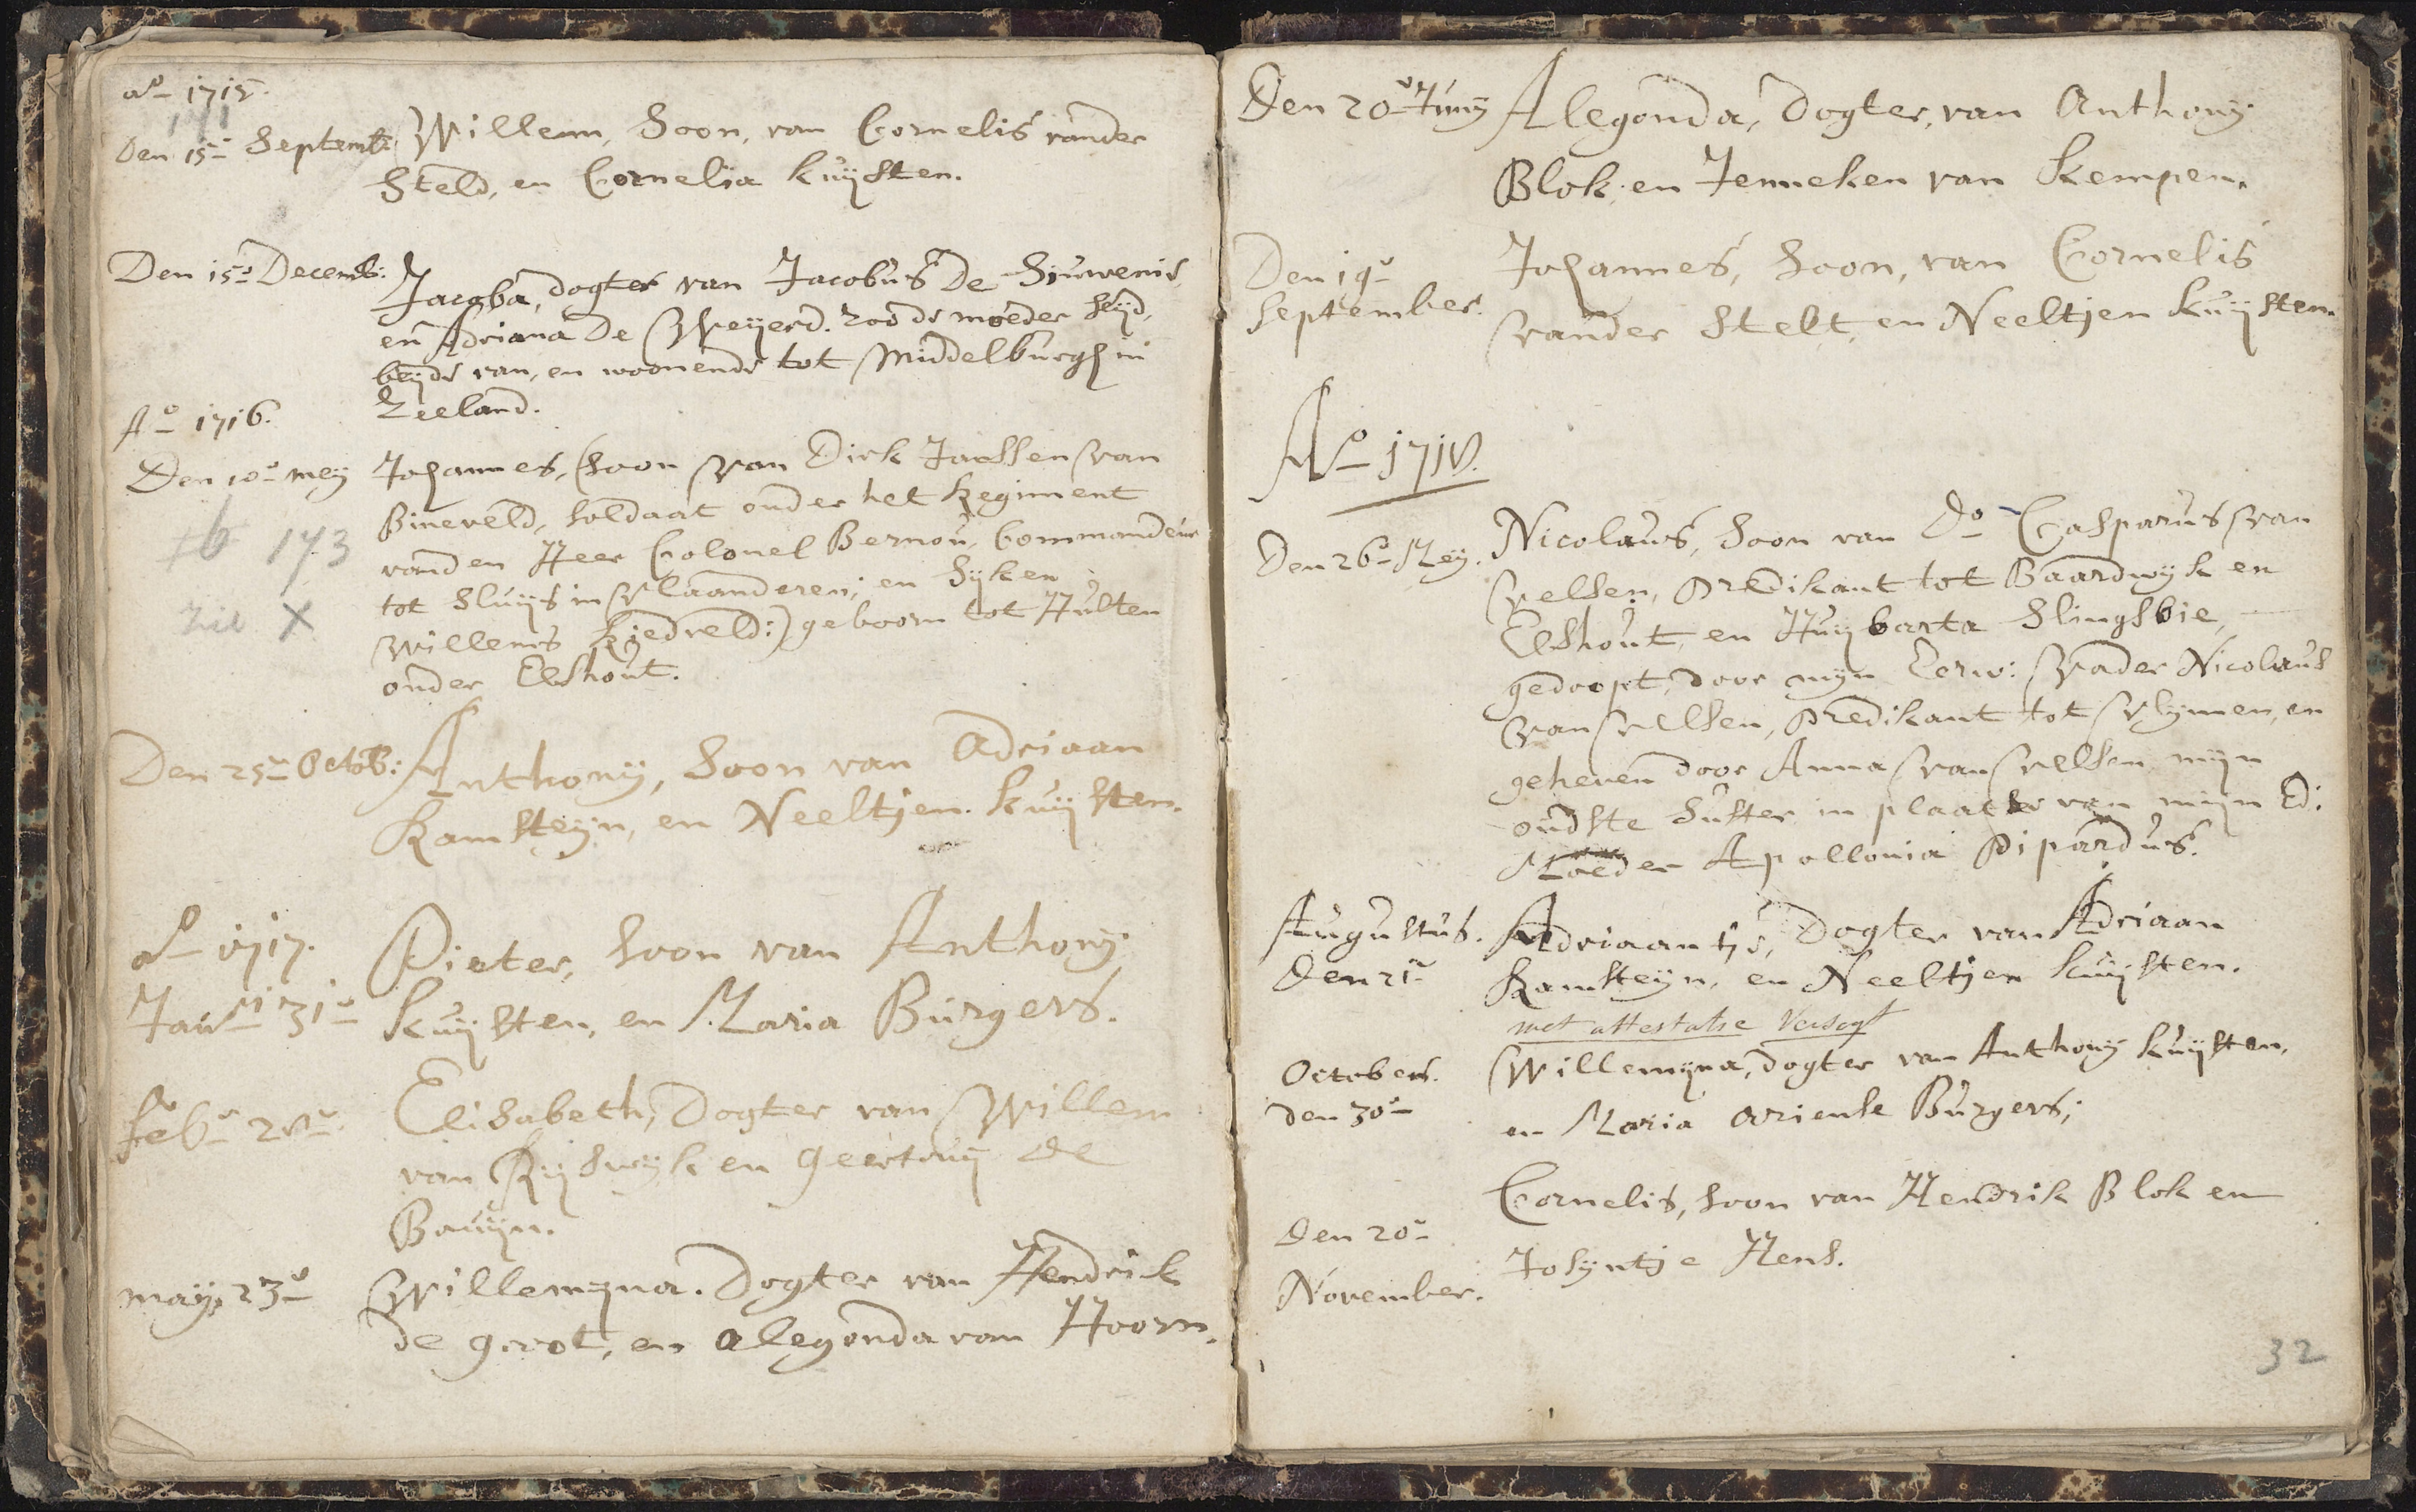 aº 1715.
171
Den 15e Septemb: Willem, Soon, van Cornelis vander
Steld, en Cornelia Kuijsten.
Den 15e Decemb: Jacoba, dogter van Jacobus De
en Adriana De Weijerd. zoo de moeder seijd,
beijde van, en woonende tot Middelburgh in
Zeeland.
Aº 1716.
Den 10e meij Johannes, Soon van Dirk Janssen van
Bineveld, soldaat onder het Regiment
16 173
vanden Heer Colonel Bernou, Commandeur
tot Sluijs in Vlaanderen; en Sijken
zie X
Willems Riedveld:) geboorn tot Hulten
onder Elshout.
Den 25e Octob: Anthonij, Soon van Adriaan
Ramsteijn, en Neeltjen Kuijsten.
aº 1717. Pieter, Soon van Anthonij
Janri 31e Kuijsten, en Maria Burgers.
Febr 28e Elisabeth, Dogter van Willem
van Rijswijk en geertruij de
Bauijn.
maij 23e Willemijna. Dogter van Hendrick
de groot, en Alegonda van Hoorn.
Den 20e Junij Alegonda, Dogter, van Anthonij
Blok, en Jenneken van Kempen.
Den 19e Johannes, Soon, van Cornelis
September. vander Stelt, en Neeltjen Kuijsten.
Aº 1718.
Den 26e Meij. Nicolaus, Soon van Dº Casparus van
Velsen, Predikant tot Baardwijk en
Elshout, en Huijbarta Slingsbie,
gedoopt, door mijn Eerw: Vader Nicolaus
van Velsen, Predikant tot Vlijmen, en
geheven door Anna van Velsen mijn
oudste Suster in plaatse van mijn Ed:
Moeder Apollonia Pipardus.
Augustus. Adriaantje, Dogter van Adriaan
Den 21e Ramsteijn, en Neeltjen Kuijsten.
met attestatie Versogt
October. Willemijna, Dogter van Anthonij Kuijsten,
den 30e en Maria Ariense Burgers;
Cornelis, Soon van Hendrik Blok en
Den 20e
Josyntje Hens.
November.
32